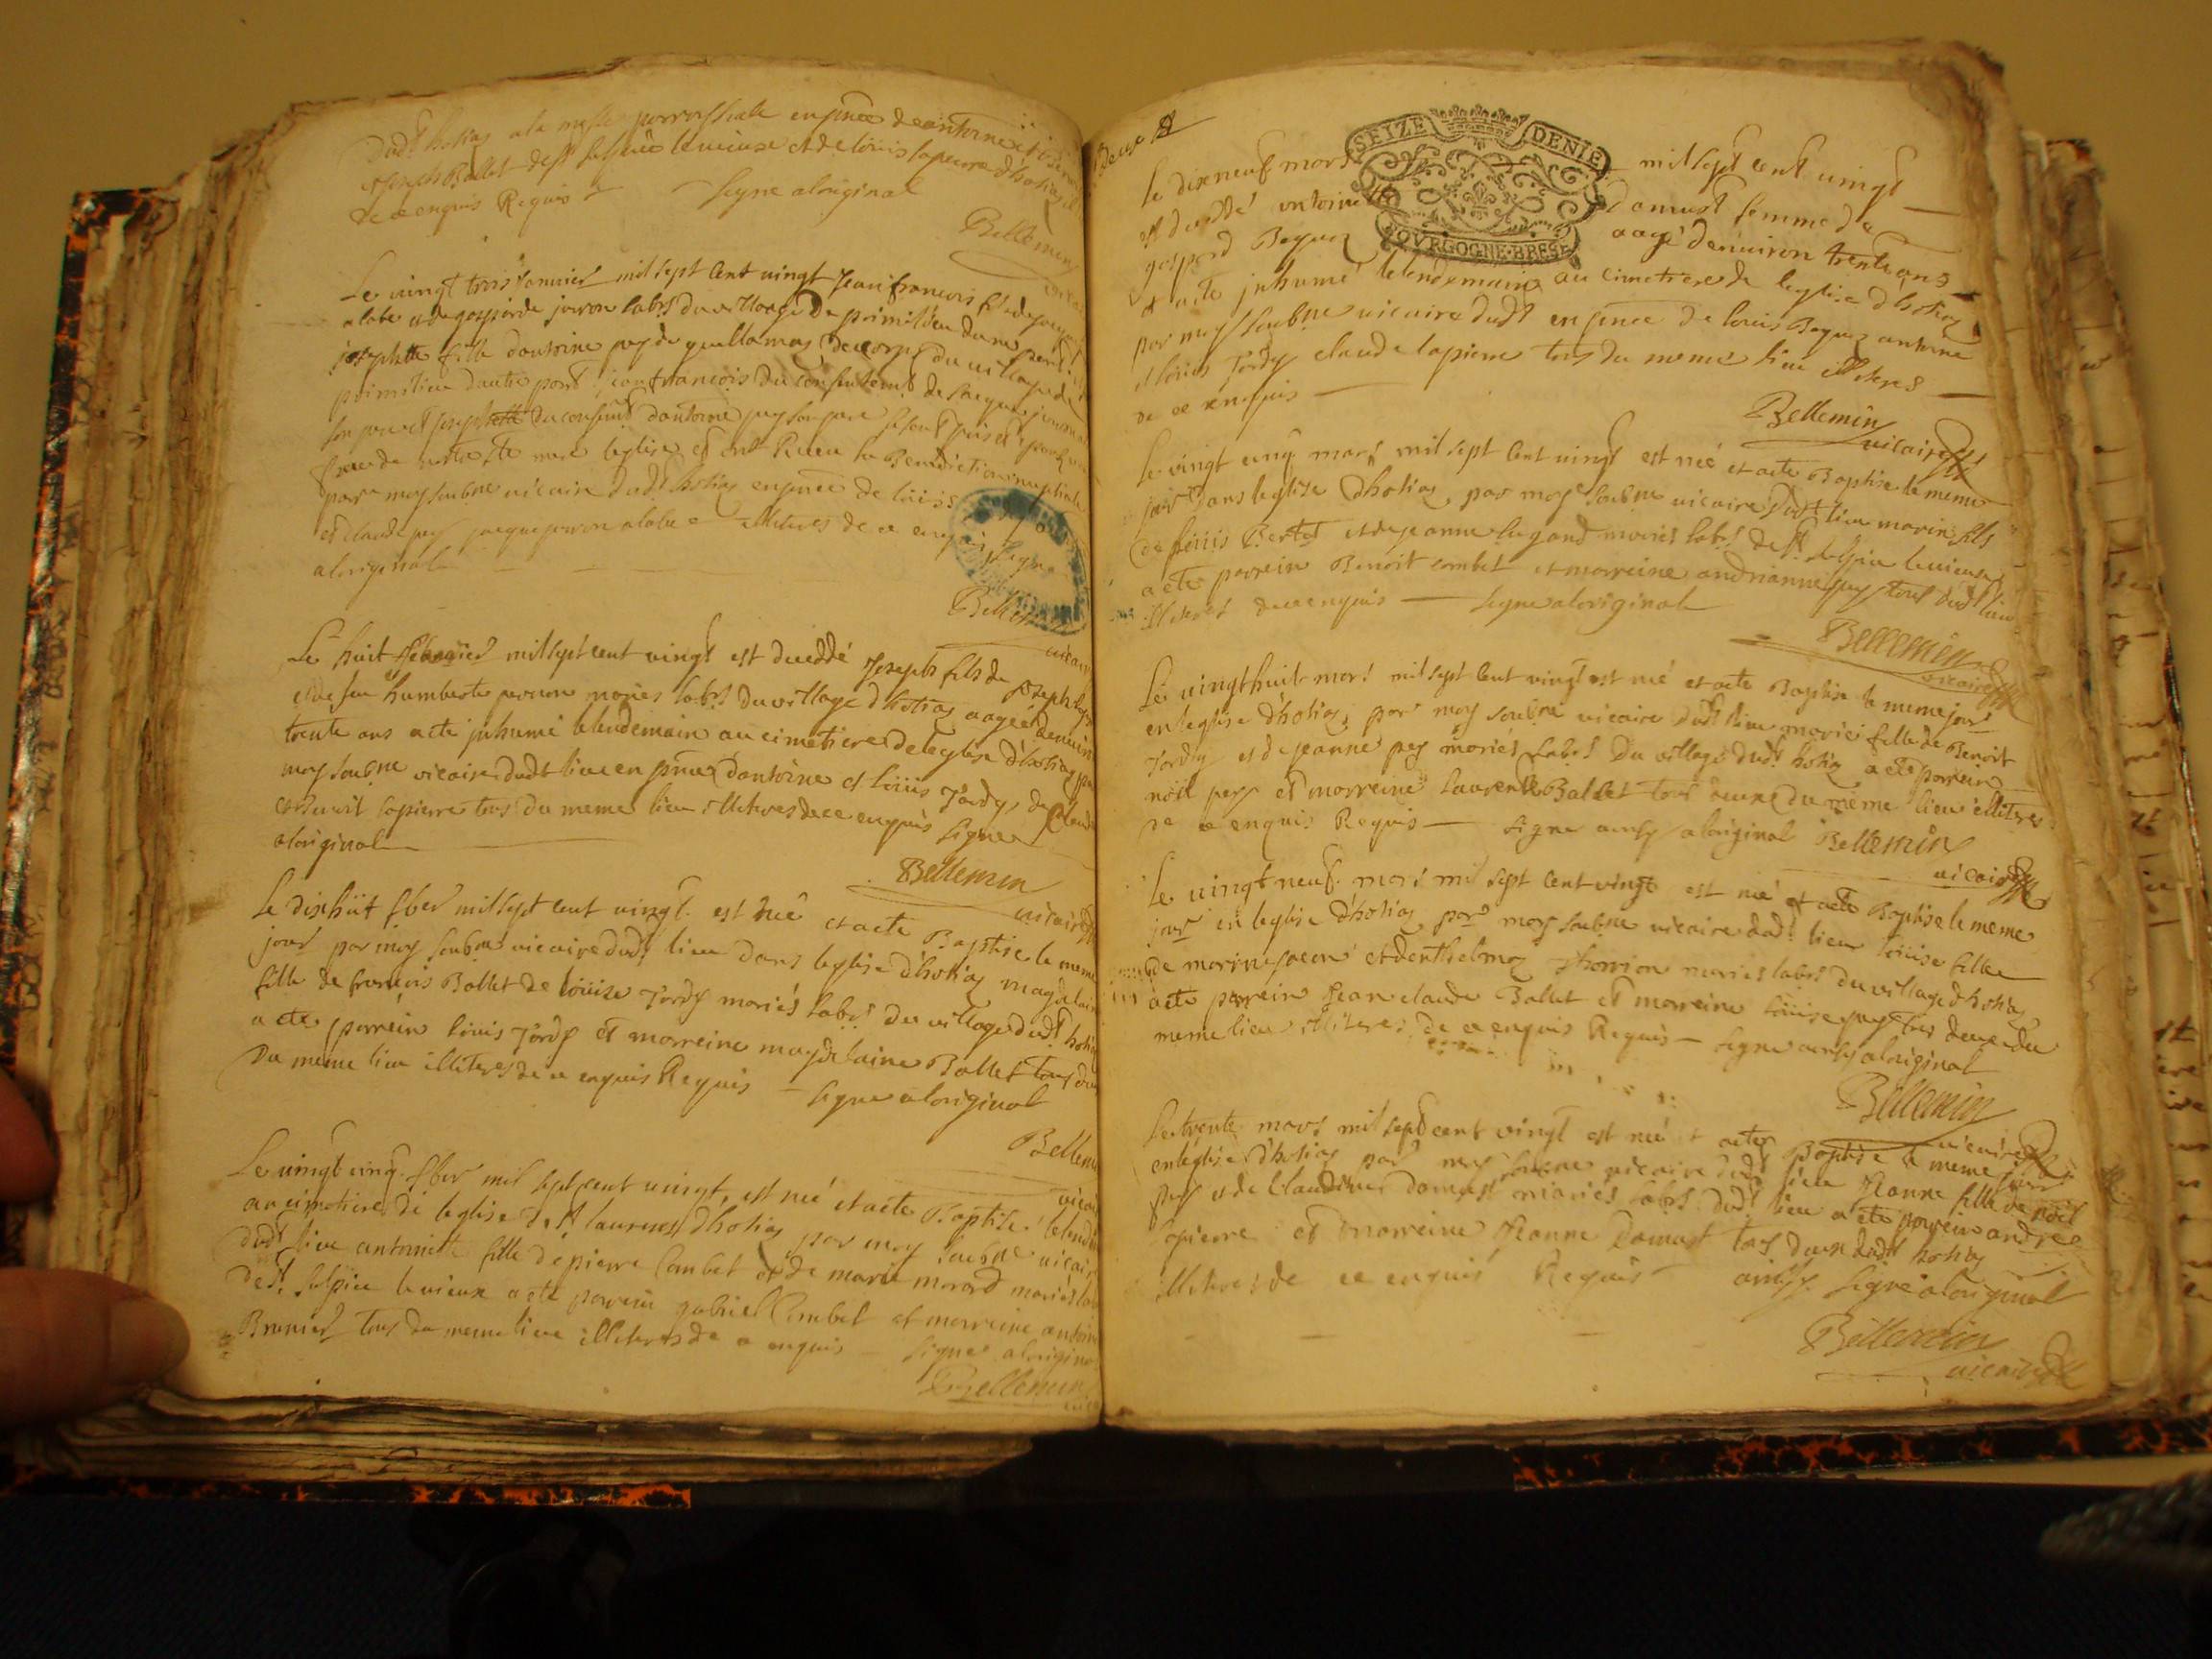 dudt hotias a la messe parrossiale en pnce de antoine et
Joseph Ballet de st sulpice le vieux et de loüis lapierre d'hotias
de ce enquis Requis Signe a loriginal
Bellemin
Le vingt trois Janvier mil sept Cent vingt Jean francois fils de Jacque
alabe et de gasparde jarron labrs du village de primilieu dune part et
josephtte fille dantoine pey de guillamaz decorps du village de
primilieu dautre part jean francois du consentemt de Jacque
son pere et joseph du consemt dantoine pey son pere se sont prisent
face de notre ste mere leglise et ont Receu la Benediction nuptiale
par moy soubne vicaire dudt hotias en pnce de loüis
et claude pey jacque alabe illiteres de ce enquis signe
a loriginal
Bellemin
vicaire
Le huit febvrier mil sept cent vingt est décédé Joseph fils de joseph
et de feu humberte perron mariés labrs du village dhotias aagé denviron
trente ans a eté jnhumé le lendemain au cimetiere de leglise d'hotias par
moy soubne vicaire dudt lieu en pnce dantoine et loüis Tardy, de Claude
et Benoit lapierre tous du meme lieu illiteres de ce enquis Signe
a loriginal
Bellemin
vicaire
Le dixhüit fber mil sept cent vingt est née et a eté Baptisé le meme
jour par moy soubne vicaire dudt lieu dans leglise d'hotias magdelaine
fille de francois Ballet de loüize Tardy mariés labrs du village dudt hotias
a eté parrein loüis Tardy et marreine magdelaine Ballet tous deux
du meme lieu illiteres de ce enquis Requis Signe a loriginal
Bellemin
vicaire
Le vingt cinq fber mil sept cent vingt, est née et a eté Baptize le lendemain
au cimetiere de leglise de st laurens d'hotias par moy soubne vicaire
dudt lieu antoinette fille de pierre Combet et de marie morard mariés labrs
de st sulpice le vieux a eté parrein gabriel Combet et marreine antoinette
Brunier tous du meme lieu illiteres de ce enquis Signe a loriginal
Bellemin
Deux
SEIZE DENIE
BOVRGOGNE·BRESSE
le dixneuf mars mil sept cent vingt
est décédé antoinette damast femme de
gaspard Beguez aagé denviron trente ans
a eté jnhumé le lendemain au cimetiere de leglise d'hotias
par moy soubne vicaire dudt en pnce de loüis Beguez antoine
et loüis Tardy claude lapierre tous du meme lieu illiteres
de ce enquis
Bellemin
vicaire
le vingt cinq mars mil sept cent vingt est né et a eté Baptise le meme
jour dans leglise d'hotias par moy soubne vicaire dudt lieu marin fils
de loüis Bertet et de jeanne lugand mariés labrs de st sulpice le vieux
a eté parrein Benoit combet et marreine andrianne pey tous dudt lieu
illiteres de ce enquis signe a loriginal
Bellemin
vicaire
Le vingt huit mars mil sept cent vingt est né et a eté Baptise le meme jour
en leglise d'hotias par moy soubne vicaire dudt lieu marie fille de Benoit
Tardy et de jeanne pey mariés labrs du village dudt hotias a eté parrein
noël pey et marreine laurence Ballet tous deux du meme lieu illiteres
de ce enquis Requis signe ainsy a loriginal Bellemin
vicaire
Le vingt neuf mars mil sept cent vingt est né et a eté Baptise le meme
jour en leglise d'hotias par moy soubne vicaire dudt lieu loüise fille
de marin et denthelmaz mariés labrs du village d'hotias
a eté parrein jean claude Ballet et marreine loüise pey tous deux du
meme lieu illiteres de ce enquis Requis signe ainsy a loriginal
Bellemin
vicaire
Le trente mars mil sept cent vingt est né et a eté Baptise le meme jour
en leglise d'hotias par moy soubne vicaire dudt lieu Jeanne fille de noël
pey et de Claudine damast mariés labrs dudt lieu a eté parrein andree
lapierre et marreine Jeanne damast tous deux dudt hotias
illiteres de ce enquis Requis ainsy signe a loriginal
Bellemin
vicaire